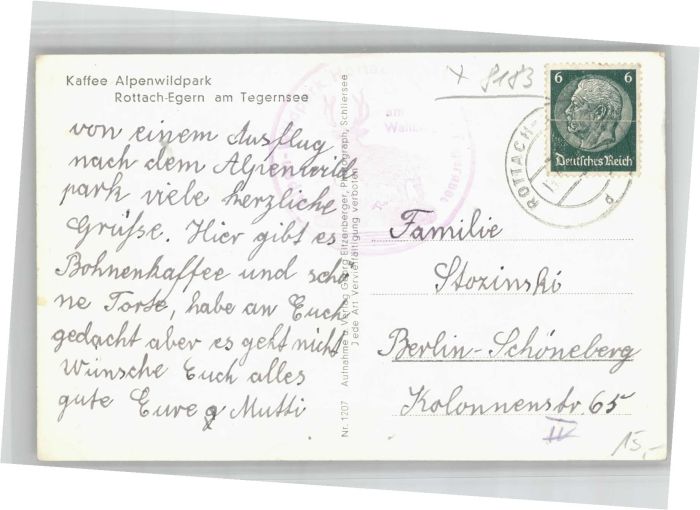 Kaffee Alpenwildpark
Rottach-Egern am Tegernsee
von einem Ausflug
nach dem Alpenwild
park viele herzliche
Grüße. Hier gibt es
Bohnenkaffee und schö
ne Torte, habe an Euch
gedacht aber es geht nicht
Wünsche Euch alles
gute Eure Mutti
Nr. 1207 Aufnahme u. Verlag Georg Eitzenberger, Photograph, Schliersee
Jede Art Vervielfältigung verboten
8183
6 6
Deutsches Reich
ROTTACH-
Familie
Stozinski
Berlin-Schöneberg
Kolonnenstr. 65
IV
15,-